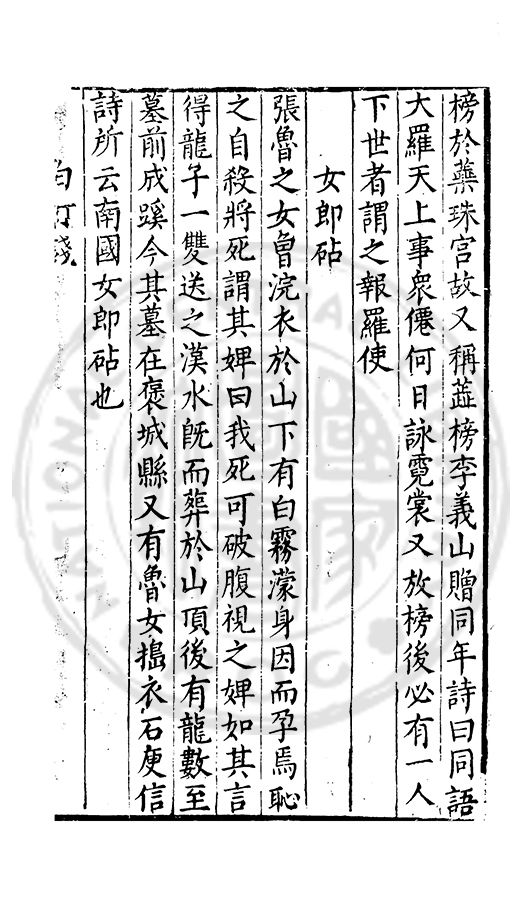 榜於蘂珠宫故又稱蕋榜李義山贈同年詩曰同語
大羅天上事衆僊何日詠霓裳又放榜後必有一人
下世者謂之報羅使
女郎砧
張魯之女曾浣衣於山下有白霧濛身因而孕焉恥
之自殺將死謂其婢曰我死可破腹視之婢如其言
得龍子一雙送之漢水旣而葬於山頂後有龍數至
墓前成蹊今其墓在褒城縣又有魯女搗衣石庾信
詩所云南國女郎砧也